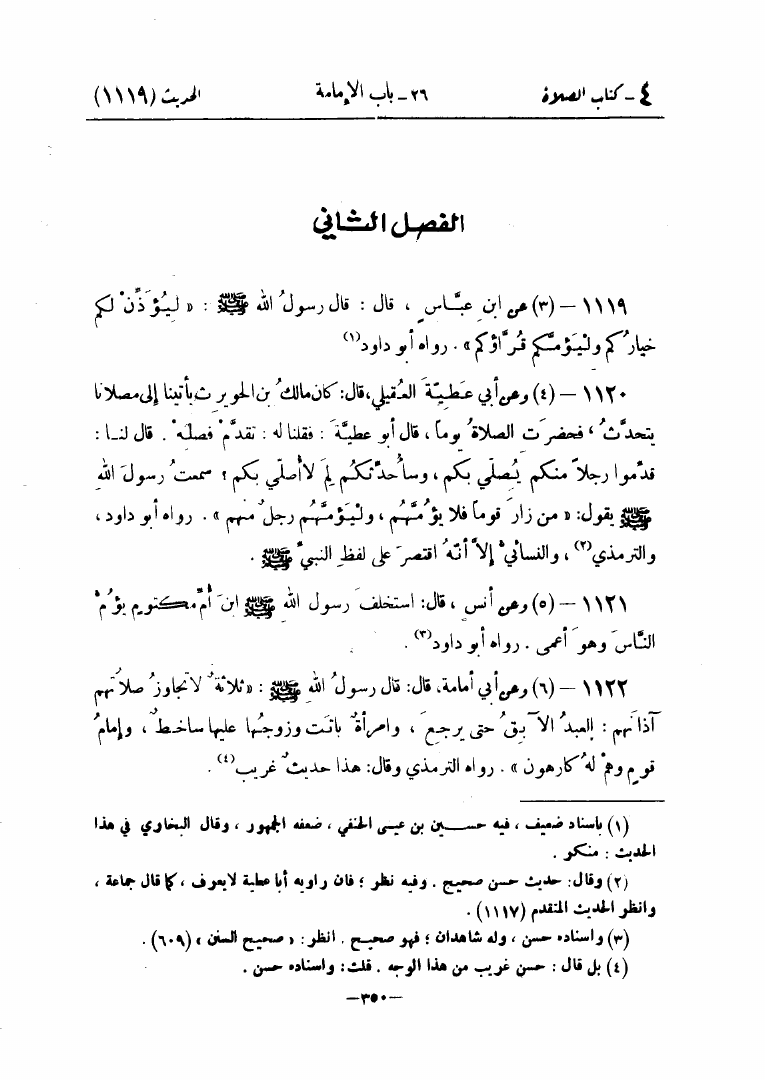 ٤ - كتاب الصلاة ٢٦ - باب الإمامة الحديث (١١١٩)
الفصل الثاني
١١١٩ - (٣) عن ابنِ عبَّاسٍ ، قال : قال رسولُ الله ﷺ : « لِيُؤَذِّنْ لكم
خيارُكم ولْيَؤمَّكم قُرَّاؤكم » . رواه أبو داود(١)
١١٢٠ - (٤) وعن أبي عَطِيّةَ العُقيلي، قال: كان مالكُ بن الحويرث يأتينا إلى مصلانا
يتحدَّثُ ، فحضرَت الصلاةُ يوماً ، قال أبو عطيَّةَ : فقلنا له : تقدَّمْ فصلِّهْ . قال لنا :
قدِّموا رجلاً منكم يُصلّي بكم ، وسأُحدّثكم لِمَ لا أُصلّي بكم ؟ سمعتُ رسولَ اللهِ
ﷺ يقول: « من زارَ قوماً فلا يؤمَّهُم ، ولْيَؤمَّهُم رجلٌ منهم » . رواه أبو داود ،
والترمذي(٢) ، والنسائيُّ إلاَّ أنَّهُ اقتصرَ على لفظِ النبيِّ ﷺ .
١١٢١ - (٥) وعن أنسٍ ، قال: استخلفَ رسول اللهِ ﷺ ابنَ أُمِّ مكتومٍ يؤُمُّ
النَّاسَ وهوَ أعمى . رواه أبو داود(٣) .
١١٢٢ - (٦) وعن أبي أمامة، قال: قال رسولُ اللهِ ﷺ : «ثلاثةٌ لا تجاوزُ صلاتُهم
آذانَهم : العبدُ الآبِقُ حتى يرجعَ ، وامرأةٌ باتَت وزوجُها عليها ساخطٌ ، وإمامُ
قومٍ وهمْ لهُ كارهون » . رواه الترمذي وقال: هذا حديثٌ غريب(٤) .
(١) بإسناد ضعيف ، فيه حسين بن عيسى الحنفي ، ضعفه الجمهور ، وقال البخاري في هذا
الحديث : منكر .
(٢) وقال: حديث حسن صحيح . وفيه نظر ؛ فان راويه أبا عطية لا يعرف ، كما قال جماعة ،
وانظر الحديث المتقدم (١١١٧) .
(٣) واسناده حسن ، وله شاهدان ؛ فهو صحيح . انظر : « صحيح السنن » (٦٠٩) .
(٤) بل قال : حسن غريب من هذا الوجه . قلت: واسناده حسن .
-٣٥٠-